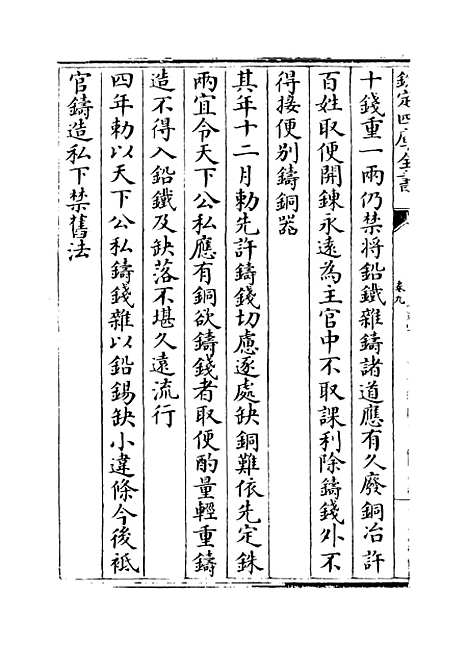 欽定四庫全書
卷九
十錢重一兩仍禁將鉛鐵雜鑄諸道應有久廢銅冶許
百姓取便開鍊永遠為主官中不取課利除鑄錢外不
得接便别鑄銅器
其年十二月勅先許鑄錢切慮逐處缺銅難依先定銖
兩宜令天下公私應有銅欲鑄錢者取便酌量輕重鑄
造不得入鉛鐵及缺落不堪久遠流行
四年勅以天下公私鑄錢雜以鉛錫缺小違條今後祗
官鑄造私下禁舊法